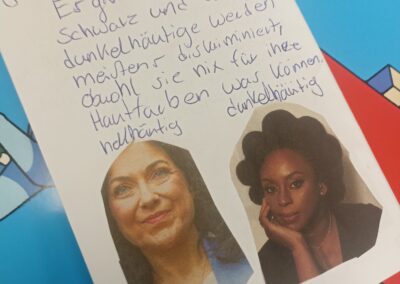 Es gi
Schwarz und
dunkelhäutige werden
meistens diskriminiert,
obwohl sie nix für ihre
Hautfarben was können.
hellhäutig dunkelhäutig